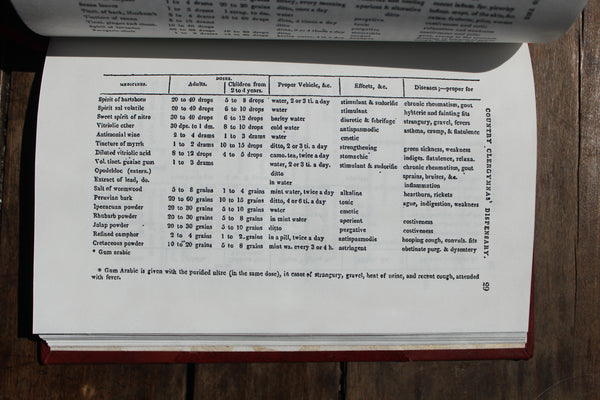 COUNTRY CLERGYMAN'S DISPENSARY. 89
DOSES.
MEDICINES. Adults. Children from 2 to 4 years. Proper Vehicle, &c. Effects, &c. Diseases;—proper for
Spirit of hartshorn 20 to 40 drops 5 to 8 drops water, 2 or 3 ti. a day stimulant & sudorific chronic rheumatism, gout
Spirit sal volatile 20 to 40 drops 6 to 10 drops water stimulant hysteric and fainting fits
Sweet spirit of nitre 30 to 40 drops 6 to 12 drops barley water diuretic & febrifuge strangury, gravel, fevers
Vitriolic ether 30 dps. to 1 dm. 8 to 10 drops cold water antispasmodic asthma, cramp, & flatulence
Antimonial wine 2 to 4 drams 1 to 3 drams water emetic
Tincture of myrrh 1 to 2 drams 10 to 15 drops ditto, 2 or 3 ti. a day strengthening green sickness, weakness
Diluted vitriolic acid 8 to 12 drops 4 to 5 drops camo. tea, twice a day stomachic indiges. flatulence, relaxa.
Vol. tinct. guiac gum 1 to 3 drams water, 2 or 3 ti. day. stimulant & sudorific chronic rheumatism, gout
Opodeldoc (extern.) ditto sprains, bruises, &c.
Extract of lead, do. in water inflammation
Salt of wormwood 5 to 8 grains 1 to 4 grains mint water, twice a day alkaline heartburn, rickets
Peruvian bark 20 to 60 grains 10 to 15 grains ditto, 4 or 6 ti. a day tonic ague, indigestion, weakness
Ipecacuan powder 20 to 30 grains 5 to 10 grains water emetic
Rhubarb powder 20 to 30 grains 5 to 8 grains in mint water aperient costiveness
Jalap powder 20 to 30 grains 5 to 10 grains ditto purgative costiveness
Refined camphor 2 to 4 grains 1 to 2 grains in a pill, twice a day antispasmodic hooping cough, convuls. fits
Cretaceous powder 10 to 20 grains 5 to 8 grains mint wa. every 3 or 4 h. astringent obstinate purg. & dysentery
* Gum arabic
* Gum Arabic is given with the purified nitre (in the same dose), in cases of strangury, gravel, heat of urine, and recent cough, attended
with fever.